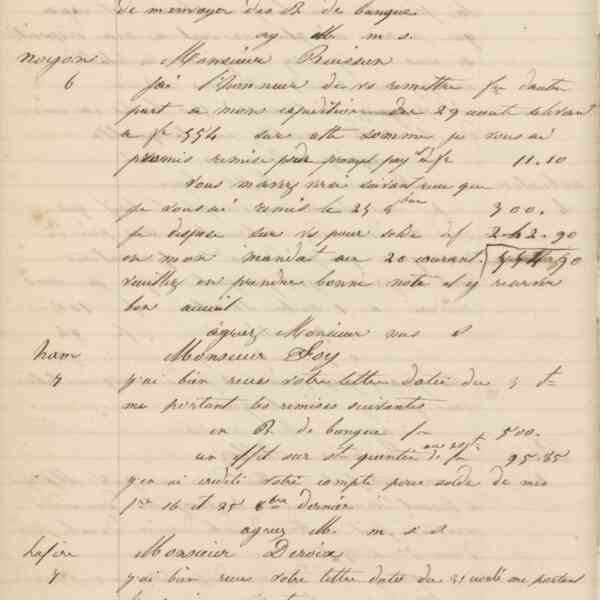 de m'envoyer des B. de banque
ag M. m. s.
noyon Monsieur Buisson
6 j'ai l'honneur de vs remettre fre d'autre
part a mon expédition du 29 aout s'élevant
a fr 554 sur cette somme je vous ai
promis remise pour prompt pay^t de fr 11.10
vous m'avez
je vous ai remis le 25 8bre 300.
je dispose sur vs pour solde de f 242.90
en mon mandat au 20 courant. 554
veuillez en prendre bonne note et y réserver
bon acceuil
agréez Monsieur mes s
ham Monsieur Foy
7 j'ai bien recue votre lettre datée du 3 ct
me portant les remises suivantes
en B. de banque fr 500.
un effet sur st quentin de fr 95.85
j'en ai crédité votre compte pour solde de mes
fre 16 et 25 8bre dernier
agréez M. m. s s
Lafère Monsieur Deroix
7 j'ai bien recue votre lettre datée du 31 me portant